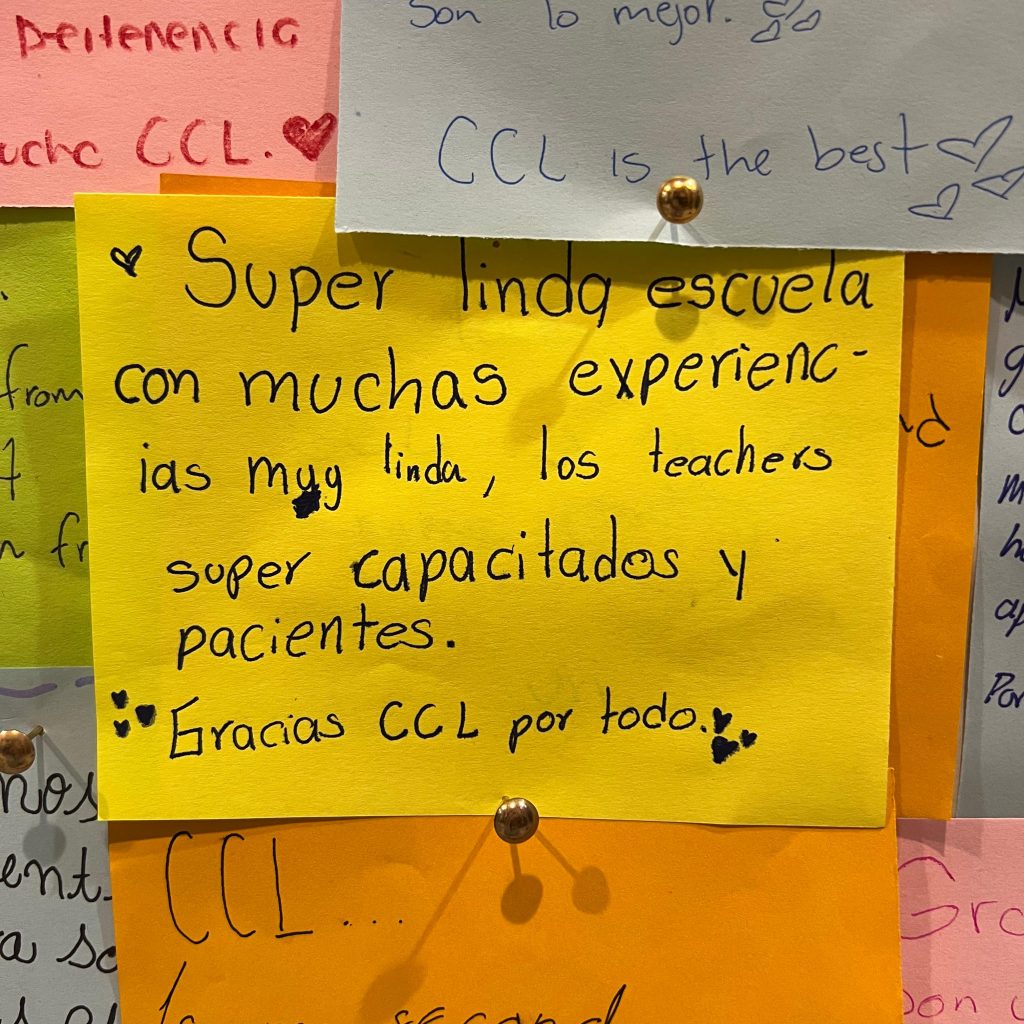 pertenencia
CCL.
Son lo mejor.
CCL is the best
Super linda escuela
con muchas experienc-
ias muy linda, los teachers
super capacitados y
pacientes.
Gracias CCL por todo.
from
CCL...
second